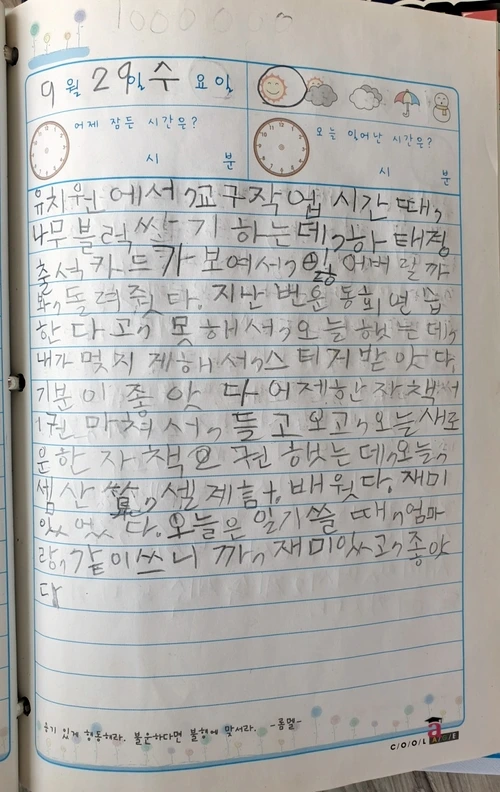 9월 29일 수요일
어제 잠든 시간은?
시 분
오늘 일어난 시간은?
시 분
유치원에서, 교구작업 시간 때,
나무블럭쌓기 하는데, 하태정
출석카드가 보여서, 잃어버릴까
봐, 돌려줫다. 지난번운동회연습
한다고, 못해서, 오늘햇는데,
내가 멎지게해서, 스티커받앗다.
기분이 좋앗다 어제한자책
1권 마쳐서, 들고오고, 오늘새로
운한자책 권 햇는데, 오늘,
셈산 算, 셀계計, 배웟다. 재미
있었다. 오늘은 일기쓸 때, 엄마
랑, 같이쓰니까, 재미있고, 좋앗
다
용기 있게 행동해라. 불운하다면 불행에 맞서라. -롬멜-
COOL